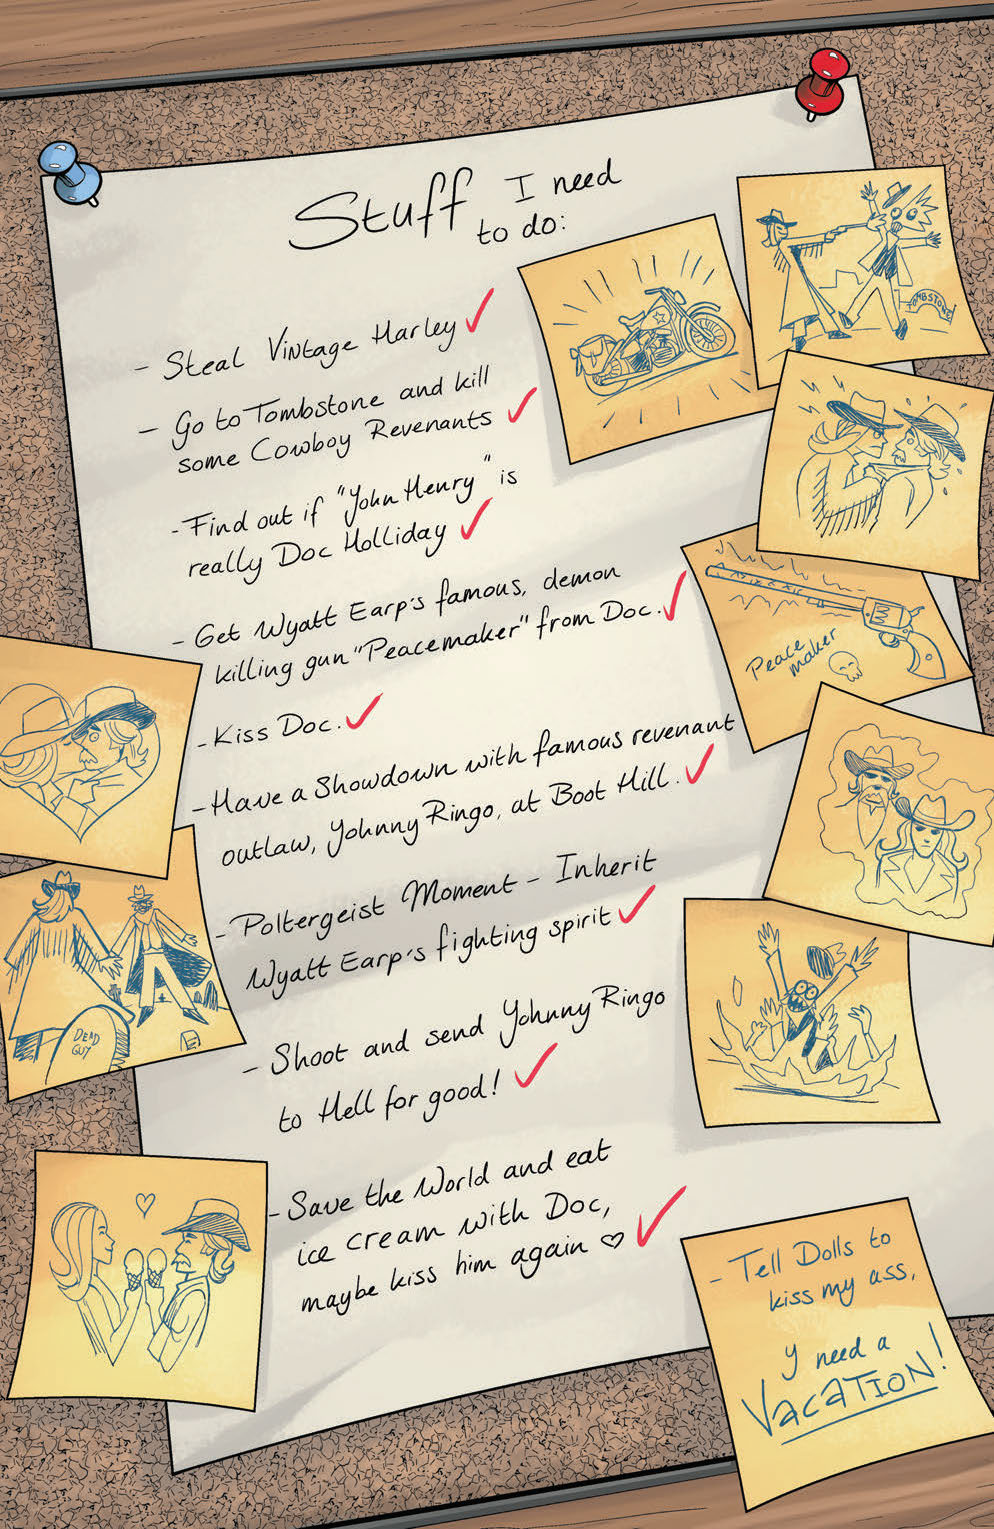 Stuff I need
to do:
- Steal Vintage Harley
- Go to Tombstone and kill
some Cowboy Revenants
- Find out if "John Henry" is
really Doc Holliday
- Get Wyatt Earp's famous, demon
killing gun "Peacemaker" from Doc.
- Kiss Doc.
- Have a Showdown with famous revenant
outlaw, Johnny Ringo, at Boot Hill.
- Poltergeist Moment - Inherit
Wyatt Earp's fighting spirit
- Shoot and send Johnny Ringo
to Hell for good!
- Save the World and eat
ice cream with Doc,
maybe kiss him again ♡
TOMBSTONE
Peace
maker
DEAD
GUY
- Tell Dolls to
kiss my ass,
I need a
VACATION!